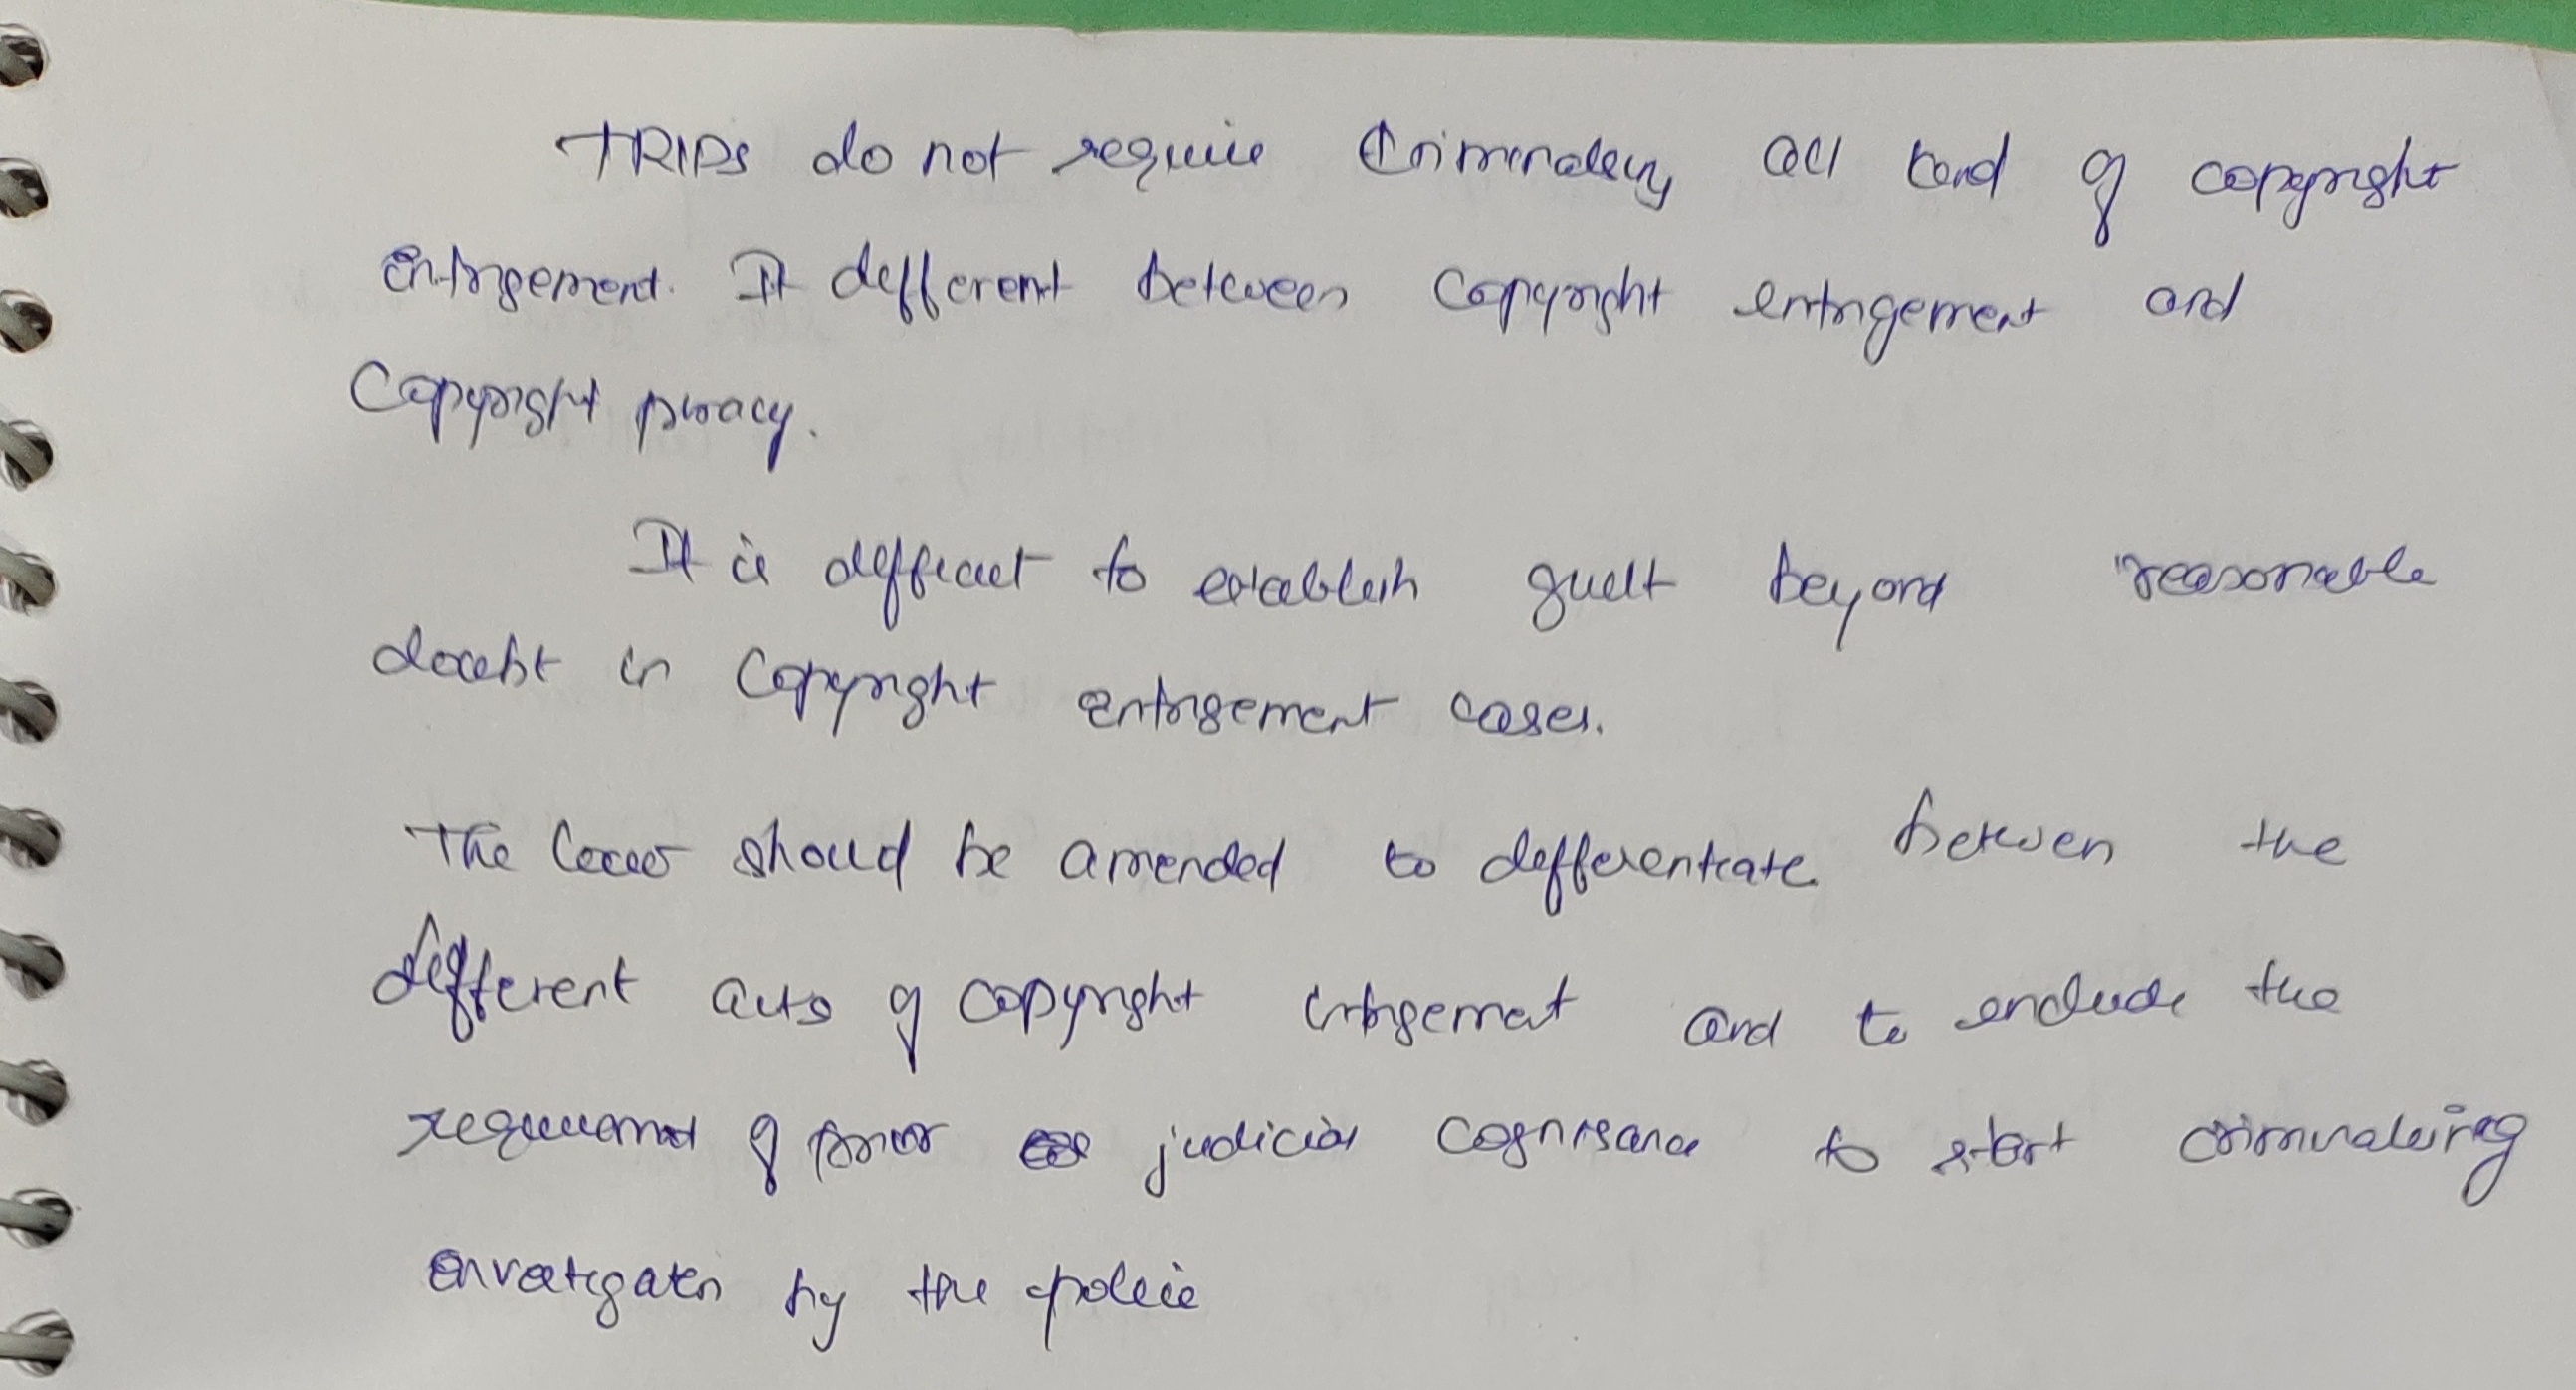 TRIPs do not require Criminalizing all kind of copyright
infringement. It different between copyright infringement and
Copyright piracy.
It is difficult to establish guilt beyond reasonable
doubt in Copyright infringement cases.
The Law should be amended to differentiate between the
different acts of copyright infringement and to include the
requirement of prior judicial cognisance to start criminalizing
investigation by the police